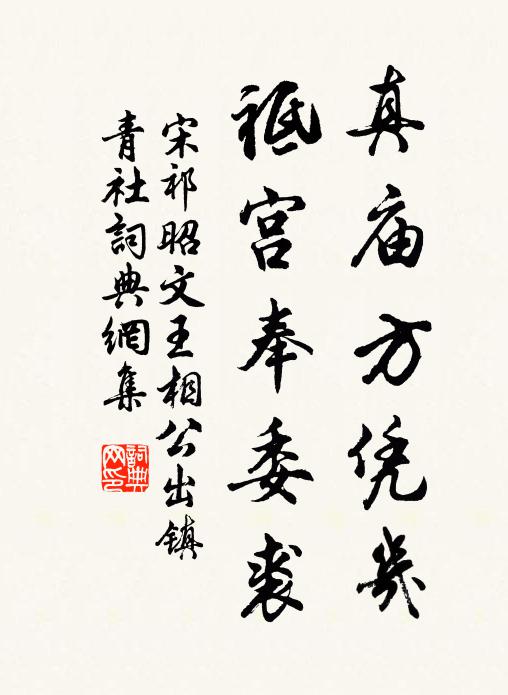 真庙方凭几
祗宫奉委裘
宋祁昭文王相公出镇
青社詞典網集
詞典网印